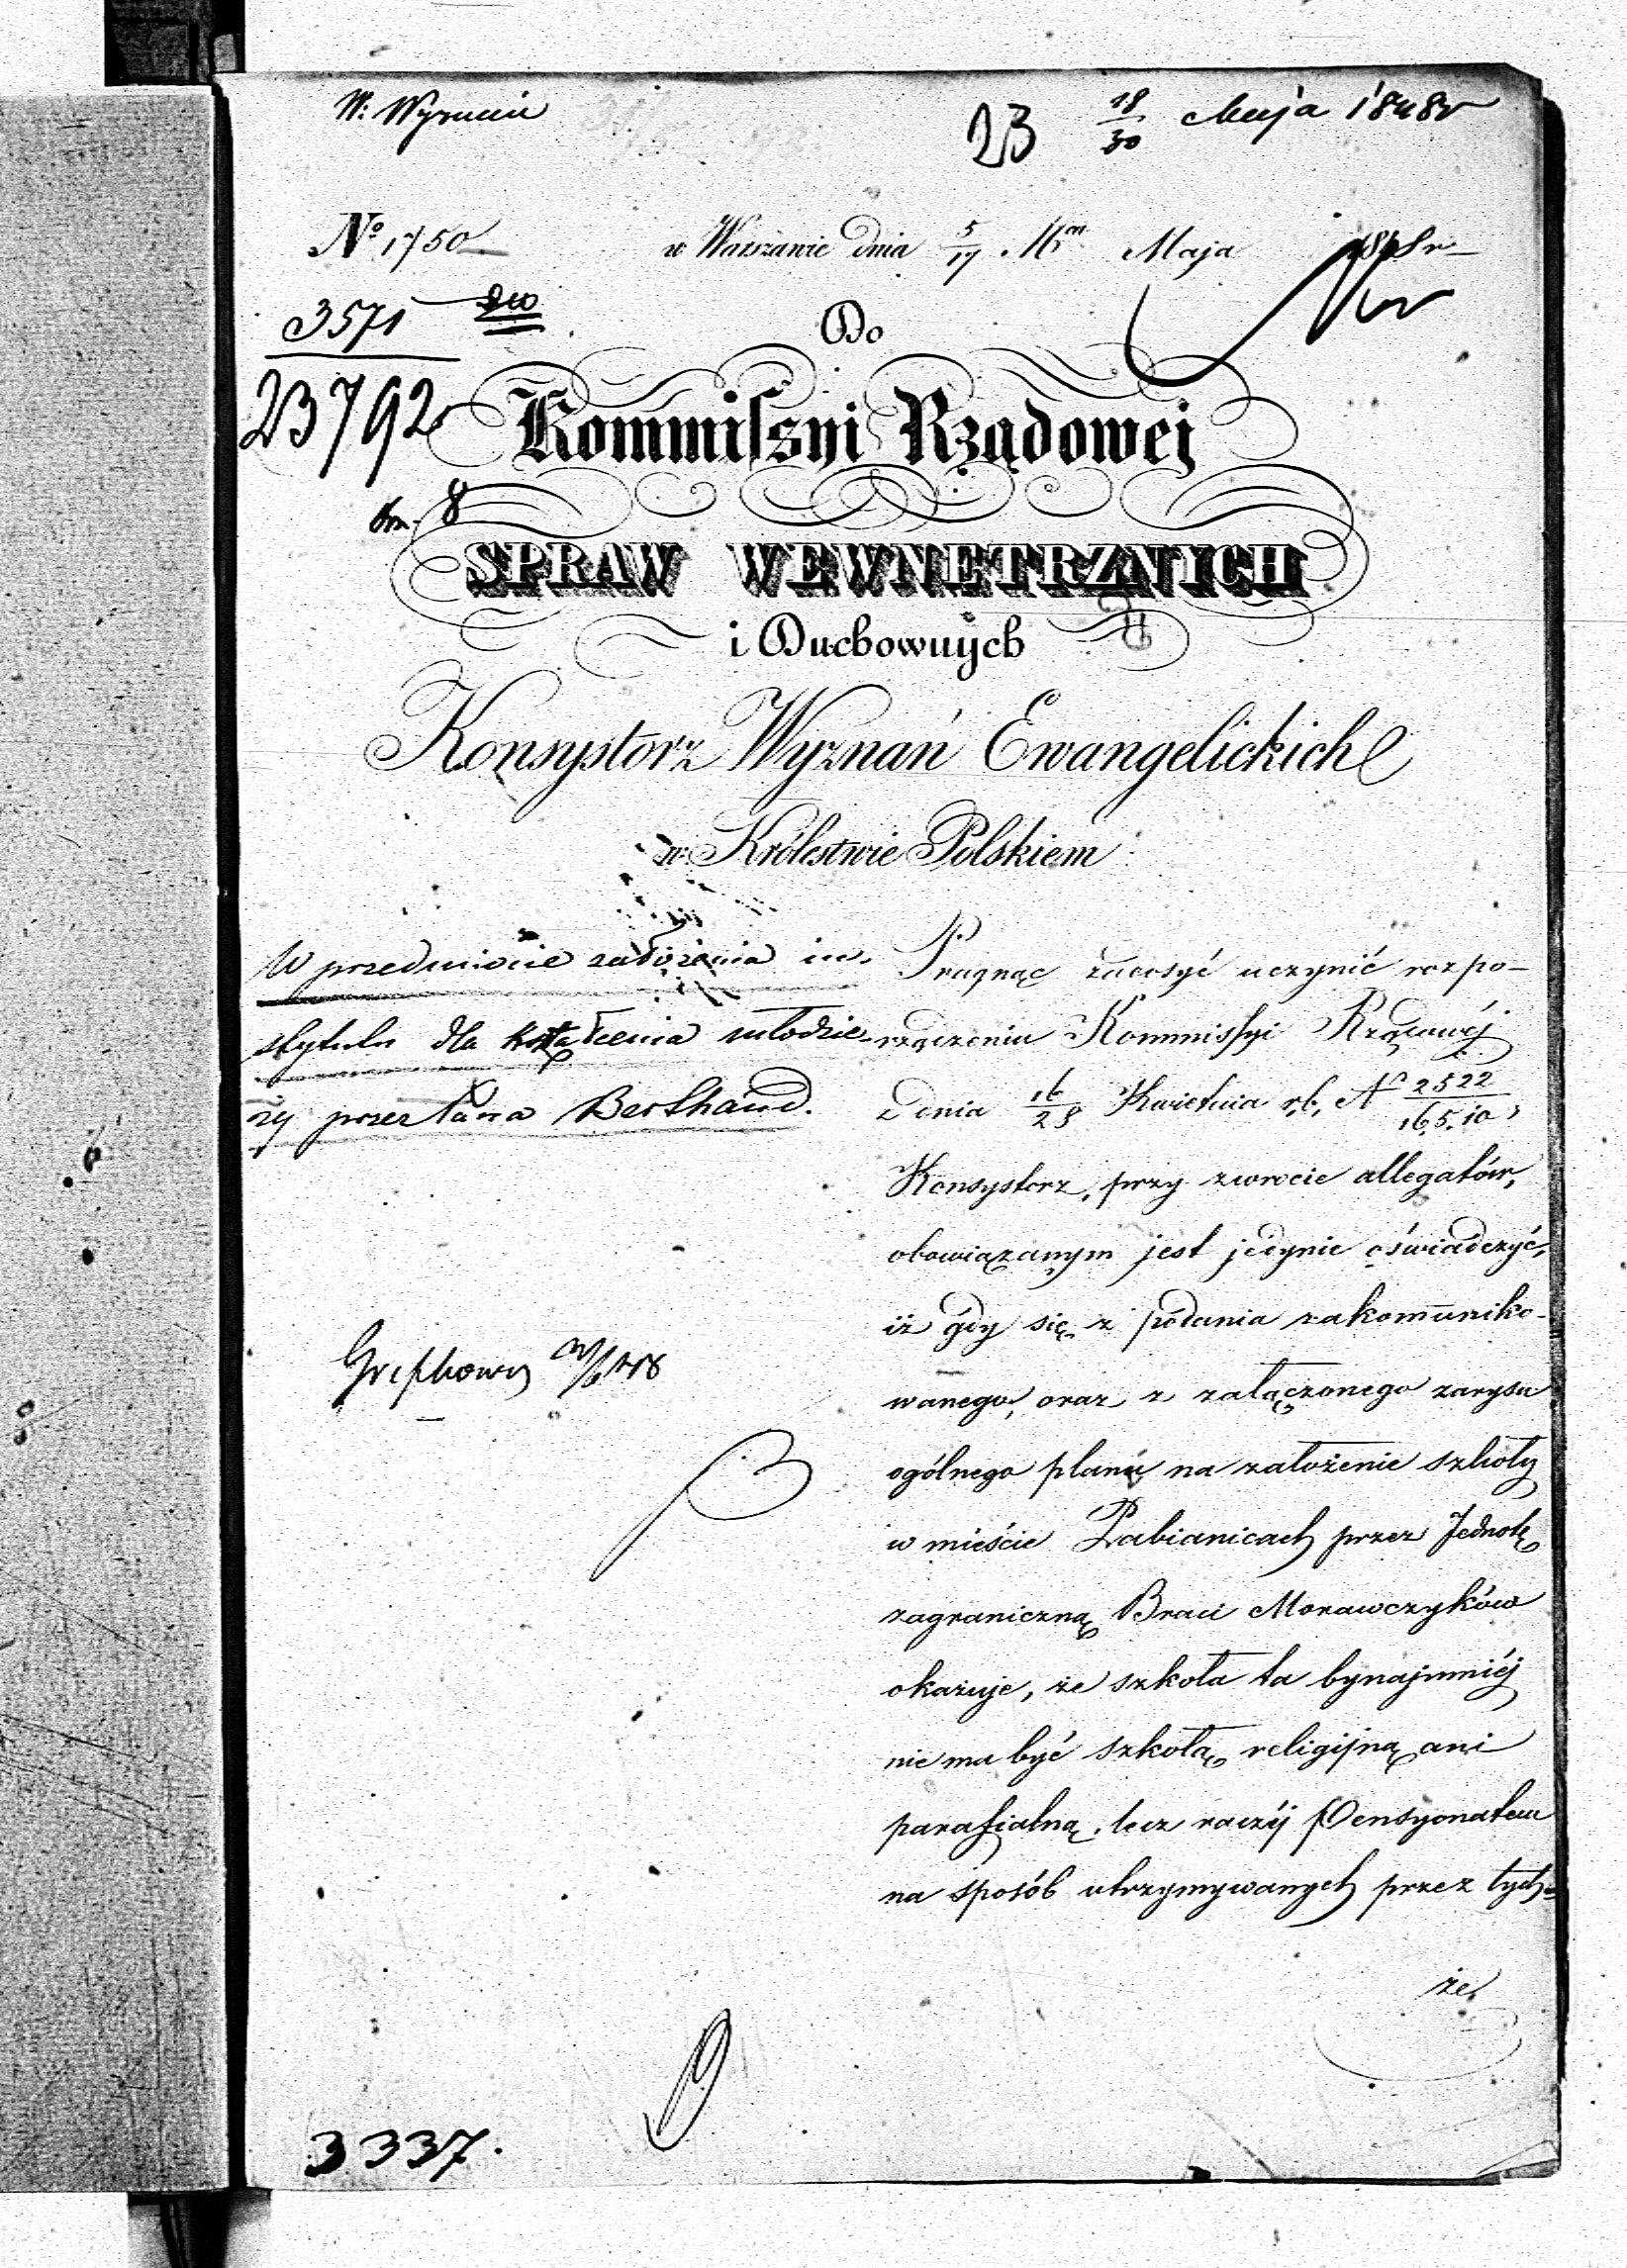 W. Wyznań
23 18/30 Maja 1848r
№ 1750
w Warszawie dnia 5/17 Maja 1848r
3571
Do
23792
Kommissyi Rządowej
8
SPRAW WEWNETRZNYCH
i Duchownych
Konsystorz Wyznań Ewangelickich
w Królestwie Polskiem
W przedmiocie założenia in-
stytutu dla kształcenia młodzie-
ży przez Pana Berthaud.
Pragnąc zadosyć uczynić rozpo-
rządzeniu Kommissyi Rządowéj
z dnia 16/28 Kwietnia r.b. № 2522/16,5.10,
Konsystorz, przy zwrocie allegatów,
obowiązanym jest jedynie oświadczyć,
iż gdy się z podania zakomuniko-
wanego, oraz z załączonego zarysu
ogólnego planu na założenie szkoły
w mieście Pabianicach przez Jednotę
zagraniczną Braci Morawczyków
okazuje, że szkoła ta bynajmniéj
nie ma być szkołą religijną ani
parafialną, lecz raczéj Pensyonatem
na sposób utrzymywanych przez tych-
że
3337.